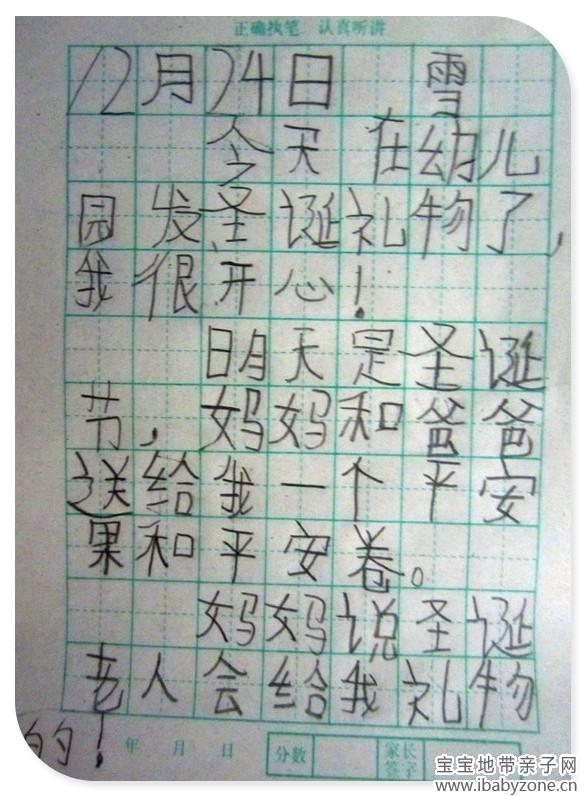 正确执笔 认真听讲
12月24日 雪
今天在幼儿
园发圣诞礼物了,
我很开心!
明天是圣诞
节,妈妈和爸爸
送给我一个平安
果和平安卷。
妈妈说圣诞
老人会给我礼物
的!
年 月 日 分数 家长签字
宝宝地带亲子网
www.ibabyzone.cn